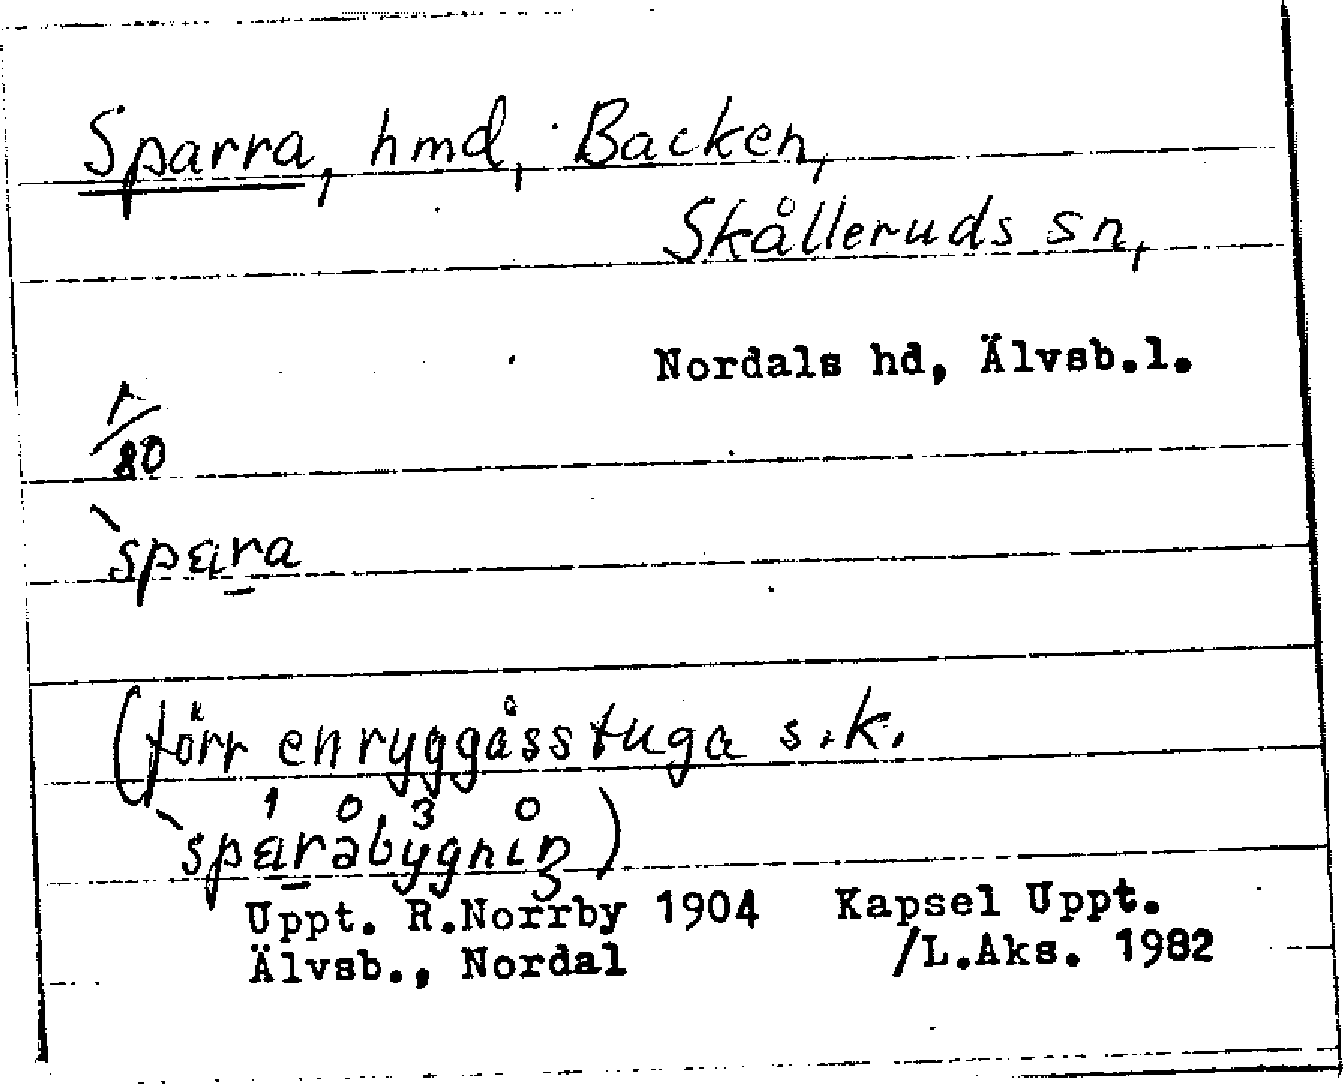 Sparra, hmd, Backen,
Skålleruds sn,
Nordals hd, Älvsb.l.
1/80
`spɑra
(förr en ryggåsstuga s.k.
`spɑrabygniŋ)
1 0 3 0
Uppt. R.Norrby 1904 Kapsel Uppt.
Älvsb., Nordal /L.Aks. 1982